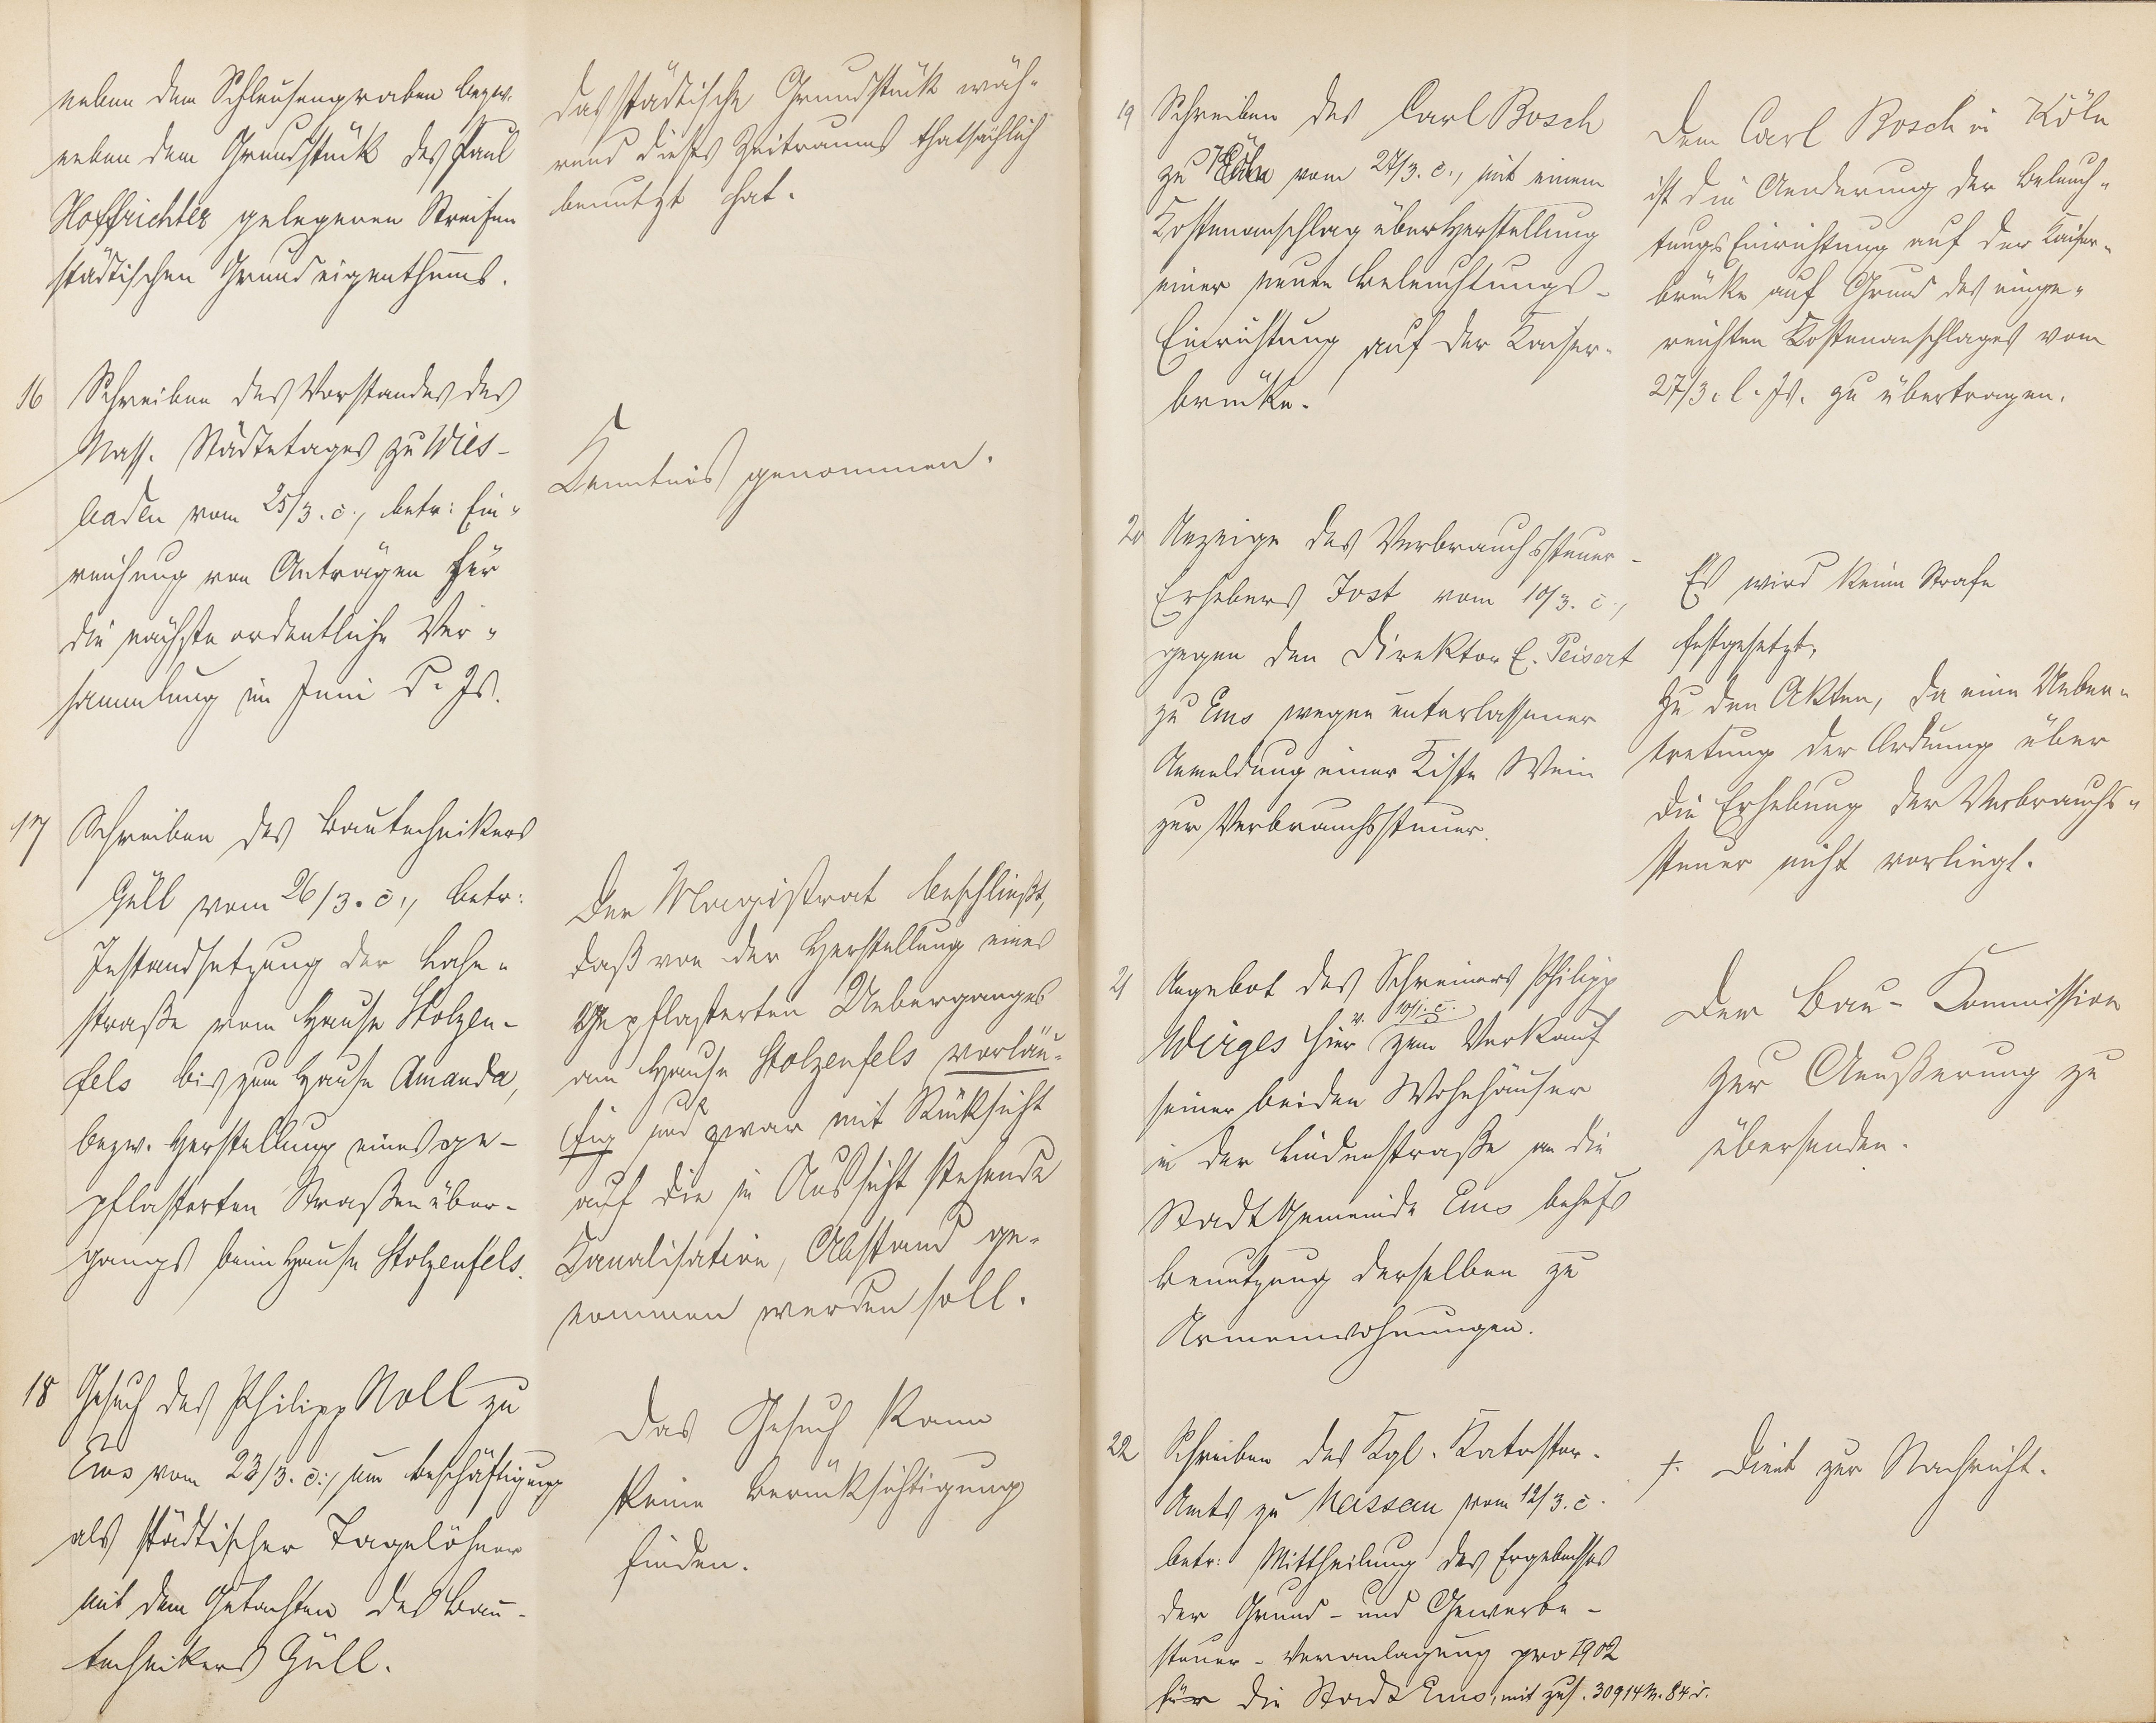 neben dem Schleusengraben bezw.
neben dem Grundstück des Paul
Hoffrichter gelegenen Streifen
städtischen Grundeigenthums.
das städtische Grundstück wäh-
rend dieses Zeitraums thatsächlich
benutzt hat.
16 Schreiben des Vorstandes des
Nass. Städtetages zu Wies-
baden vom 25/3. c., betr: Ein-
reichung von Anträgen für
die nächste ordentliche Ver-
sammlung im Juni d. Js.
Kenntnis genommen.
17 Schreiben des Bautechnikers
Güll vom 26/3. c., betr:
Instandsetzung der Lahn-
straße vom Hause Stolzen-
fels bis zum Hause Amanda,
bezw. Herstellung eines ge-
pflasterten Straßenüber-
gangs beim Hause Stolzenfels.
Der Magistrat beschließt,
daß von der Herstellung eines
gepflasterten Ueberganges
am Hause Stolzenfels vorläu-
fig und zwar mit Rücksicht
auf die in Aussicht stehende
Kanalisation, Abstand ge-
nommen werden soll.
18 Gesuch des Philipp Noll zu
Ems vom 23/3. c., um Beschäftigung
als städtischer Tagelöhner
mit dem Gutachten des Bau-
technikers Güll.
Das Gesuch kann
keine Berücksichtigung
finden.
19 Schreiben des Carl Bosch
zu Köln vom 27/3. c., mit einem
Kostenanschlag über Herstellung
einer neuen Beleuchtungs-
Einrichtung auf der Kaiser-
brücke.
Dem Carl Bosch in Köln
ist die Aenderung der Beleuch-
tungs Einrichtung auf der Kaiser-
brücke auf Grund des einge-
reichten Kostenanschlages vom
27/3. l. Js. zu übertragen.
20 Anzeige des Verbrauchssteuer-
Erhebers Jost vom 10/3. c.,
gegen den Direktor E. Peisert
zu Ems wegen unterlassener
Anmeldung einer Kiste Wein
zur Verbrauchssteuer.
Es wird keine Strafe
festgesetzt,
Zu den Akten, da eine Ueber-
tretung der Ordnung über
die Erhebung der Verbrauchs-
steuer nicht vorliegt.
21 Angebot des Schreiners Philipp
v. 10/1. c.
Wirges hier zum Verkauf
seiner beiden Wohnhäuser
in der Lindenstraße an die
Stadtgemeinde Ems behufs
Benutzung derselben zu
Armenwohnungen.
Der Bau-Kommission
zur Aeußerung zu
übersenden.
22 Schreiben des Kgl. Kataster-
Amts zu Nassau vom 12/3. c.
betr: Mittheilung des Ergebnisses
der Grund- und Gewerbe-
steuer-Veranlagung pro 1902
für die Stadt Ems, mit zus. 30914 M. 84 d.
f. Dient zur Nachricht.